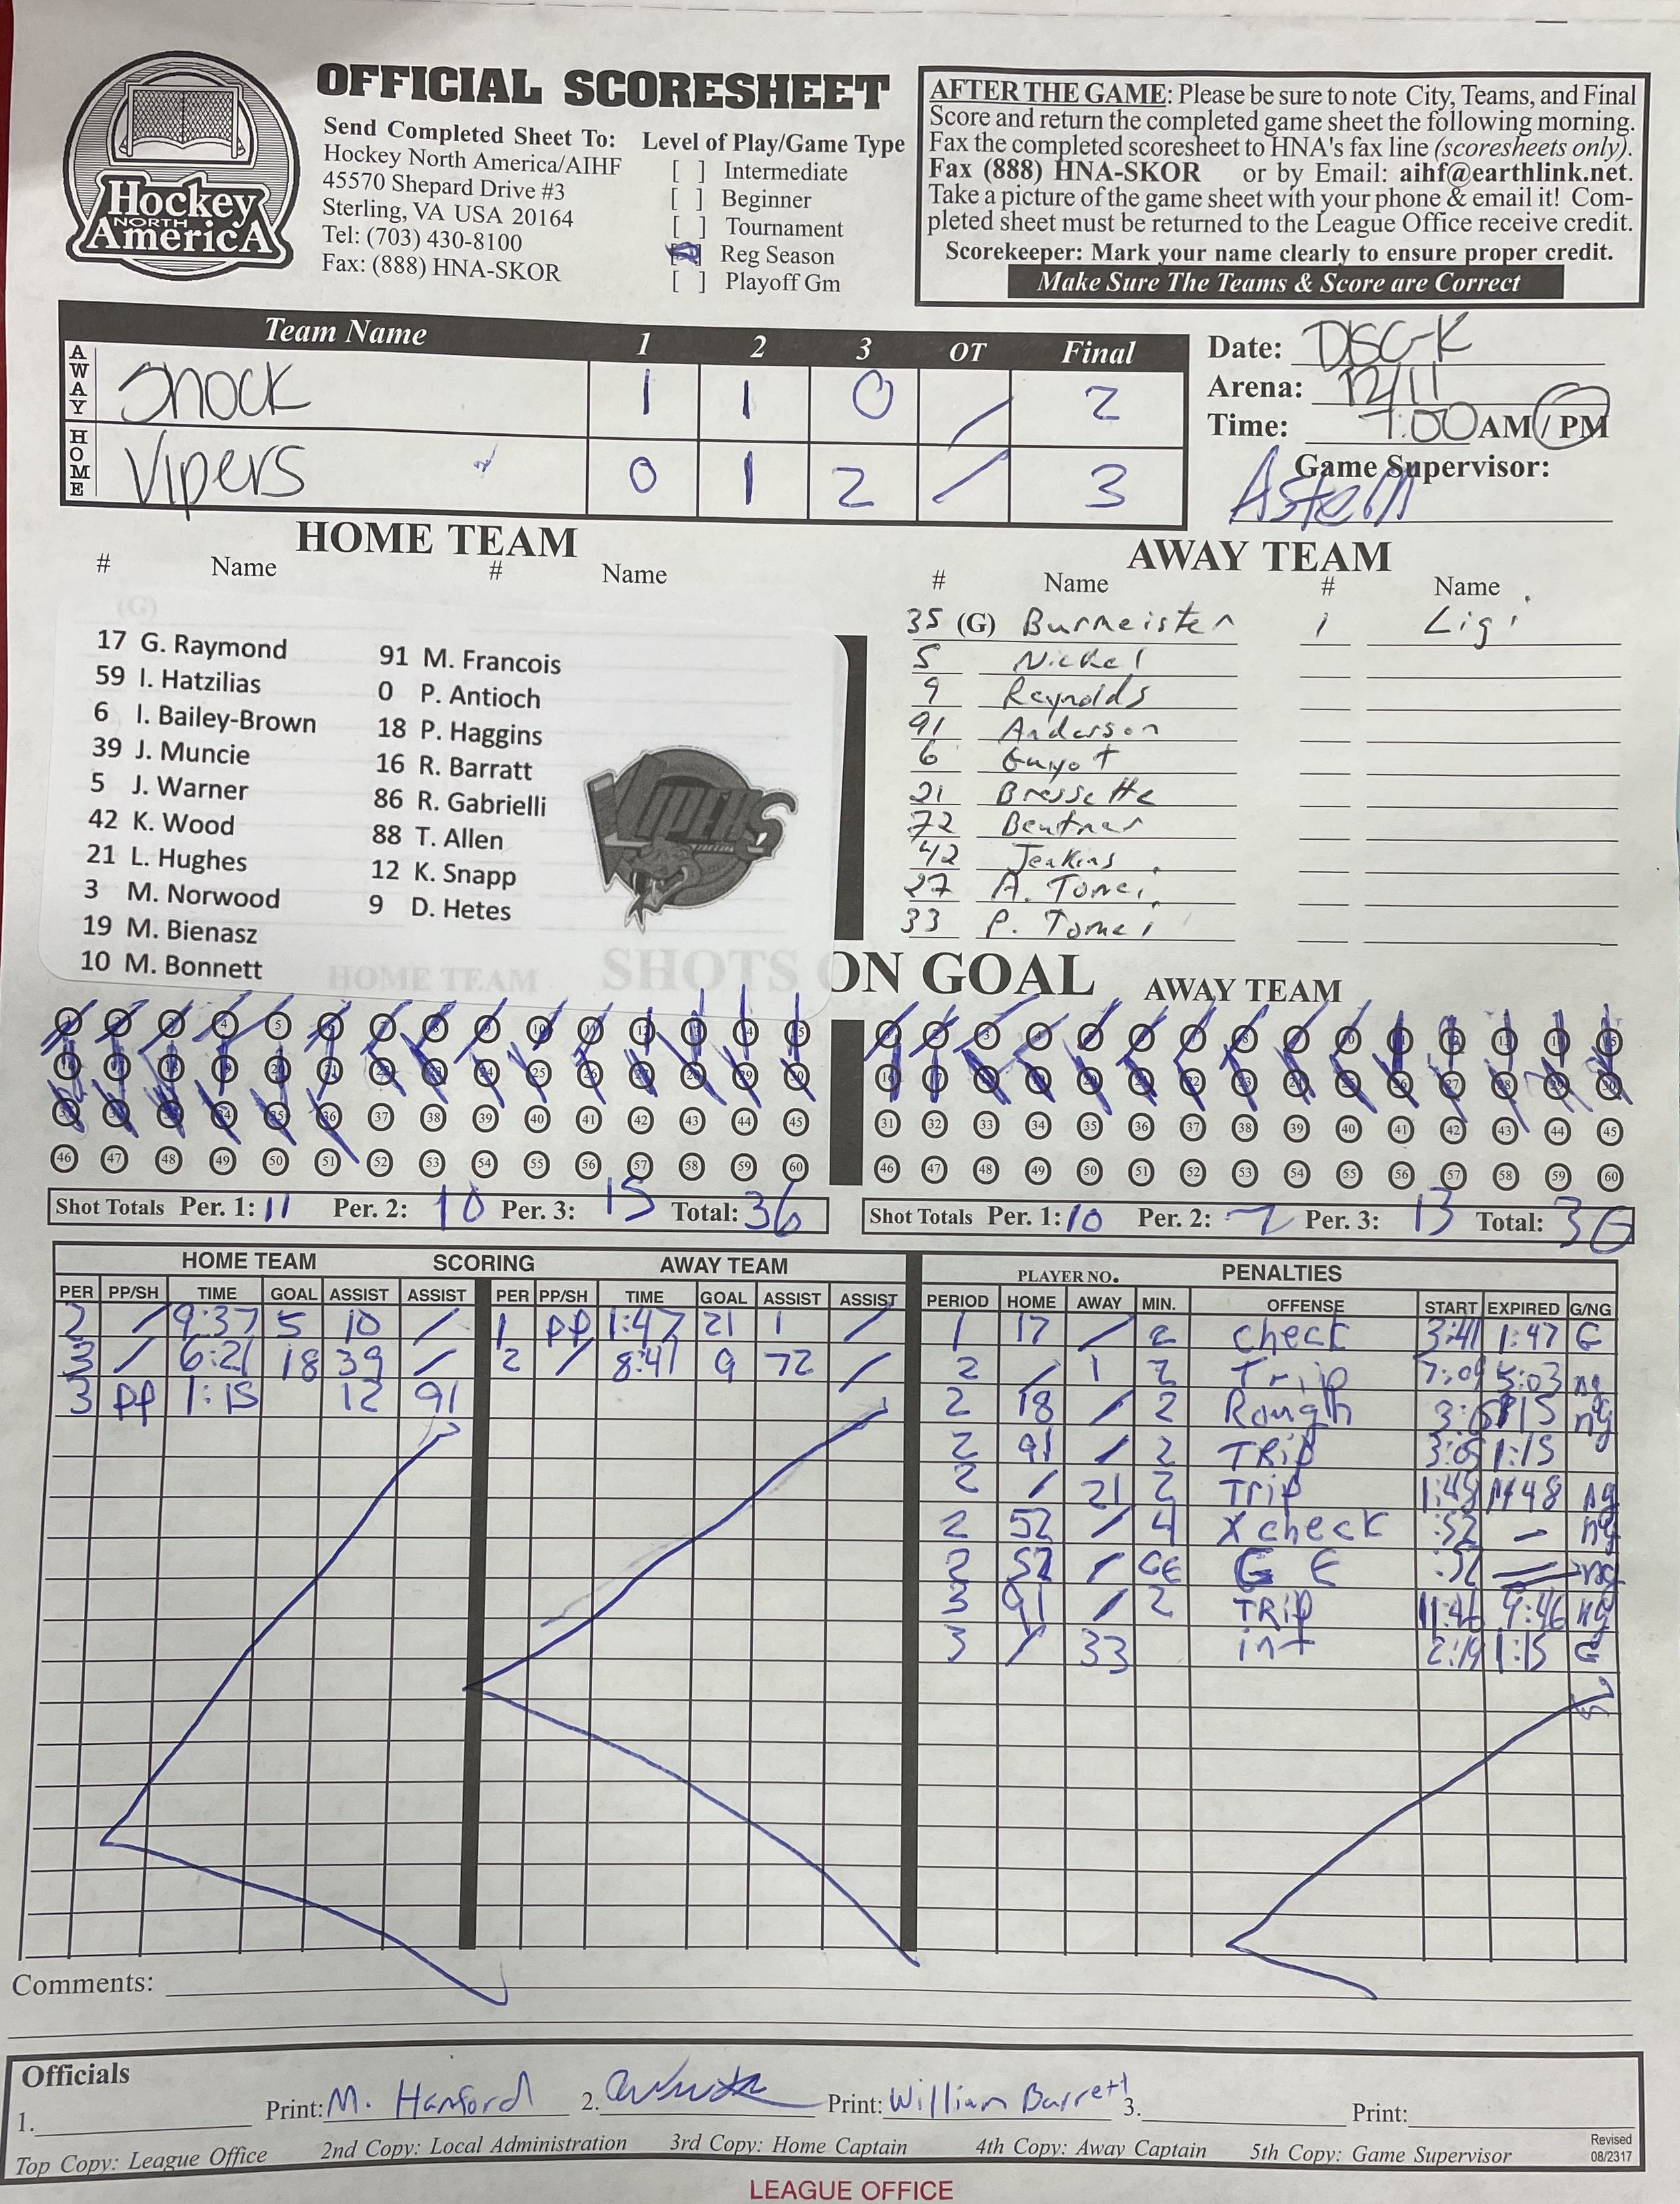 OFFICIAL SCORESHEET
Hockey
NORTH
AmericA
Send Completed Sheet To:
Hockey North America/AIHF
45570 Shepard Drive #3
Sterling, VA USA 20164
Tel: (703) 430-8100
Fax: (888) HNA-SKOR
Level of Play/Game Type
[ ] Intermediate
[ ] Beginner
[ ] Tournament
[ ] Reg Season
[ ] Playoff Gm
AFTER THE GAME: Please be sure to note City, Teams, and Final
Score and return the completed game sheet the following morning.
Fax the completed scoresheet to HNA's fax line (scoresheets only).
Fax (888) HNA-SKOR or by Email: aihf@earthlink.net.
Take a picture of the game sheet with your phone & email it! Com-
pleted sheet must be returned to the League Office receive credit.
Scorekeeper: Mark your name clearly to ensure proper credit.
Make Sure The Teams & Score are Correct
Team Name 1 2 3 OT Final
AWAY Shock 1 1 0 / 2
HOME Vipers 0 1 2 / 3
Date: DSC-K
Arena: 12/11
Time: 7:00 AM / PM
Game Supervisor:
HOME TEAM
# Name # Name
17 G. Raymond 91 M. Francois
59 I. Hatzilias 0 P. Antioch
6 I. Bailey-Brown 18 P. Haggins
39 J. Muncie 16 R. Barratt
5 J. Warner 86 R. Gabrielli
42 K. Wood 88 T. Allen
21 L. Hughes 12 K. Snapp
3 M. Norwood 9 D. Hetes
19 M. Bienasz
10 M. Bonnett
VIPERS
AWAY TEAM
# Name # Name
35 (G) Burmeister 1 Ligi
5 Nickel
9 Reynolds
91 Anderson
6 Guyot
21 Bressette
72 Beutner
42 Jenkins
27 A. Tomei
33 P. Tomei
HOME TEAM SHOTS ON GOAL AWAY TEAM
1 2 3 4 5 6 7 8 9 10 11 12 13 14 15
16 17 18 19 20 21 22 23 24 25 26 27 28 29 30
31 32 33 34 35 36 37 38 39 40 41 42 43 44 45
46 47 48 49 50 51 52 53 54 55 56 57 58 59 60
1 2 3 4 5 6 7 8 9 10 11 12 13 14 15
16 17 18 19 20 21 22 23 24 25 26 27 28 29 30
31 32 33 34 35 36 37 38 39 40 41 42 43 44 45
46 47 48 49 50 51 52 53 54 55 56 57 58 59 60
Shot Totals Per. 1: 11 Per. 2: 10 Per. 3: 15 Total: 36
Shot Totals Per. 1: 10 Per. 2: 7 Per. 3: 13 Total: 30
HOME TEAM SCORING AWAY TEAM
PER PP/SH TIME GOAL ASSIST ASSIST PER PP/SH TIME GOAL ASSIST ASSIST
2 / 9:37 5 10 / 1 PP 1:47 21 1 /
3 / 6:21 18 39 / 2 / 8:41 9 72 /
3 PP 1:15 12 91
PLAYER NO. PENALTIES
PERIOD HOME AWAY MIN. OFFENSE START EXPIRED G/NG
1 17 / 2 check 3:41 1:47 G
2 / 1 2 Trip 7:09 5:03 ng
2 18 / 2 Rough 3:05 1:15 ng
2 91 / 2 TRip 3:05 1:15
2 / 21 2 Trip 1:48 ng
2 52 / 4 X check :52 — ng
2 52 / GE G E :52 ng
3 91 / 2 TRip 11:46 9:46 ng
3 / 33 int 2:19 1:15 G
Comments:
Officials
1. Print: M. Hanford 2. Print: William Barrett 3. Print:
Top Copy: League Office 2nd Copy: Local Administration 3rd Copy: Home Captain 4th Copy: Away Captain 5th Copy: Game Supervisor
Revised
08/2317
LEAGUE OFFICE